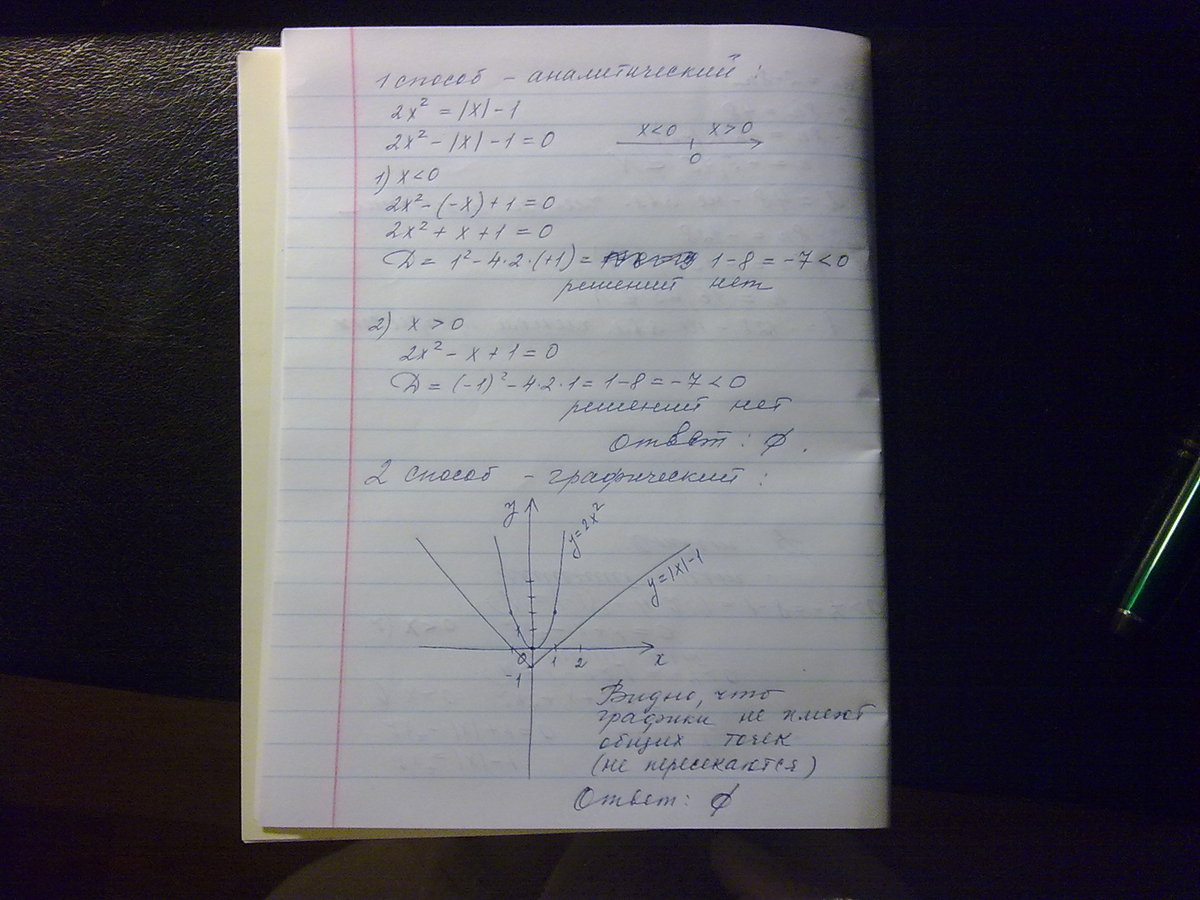 1 способ - аналитический:
2x² = |x| - 1
2x² - |x| - 1 = 0
x<0 x>0
0
1) x<0
2x² - (-x) + 1 = 0
2x² + x + 1 = 0
D = 1² - 4·2·(+1) = 1 - 8 = -7 < 0
решений нет
2) x > 0
2x² - x + 1 = 0
D = (-1)² - 4·2·1 = 1 - 8 = -7 < 0
решений нет
Ответ: ∅.
2 способ - графический:
y
y=2x²
y=|x|-1
1
0 1 2 x
-1
Видно, что
графики не имеют
общих точек
(не пересекаются)
Ответ: ∅